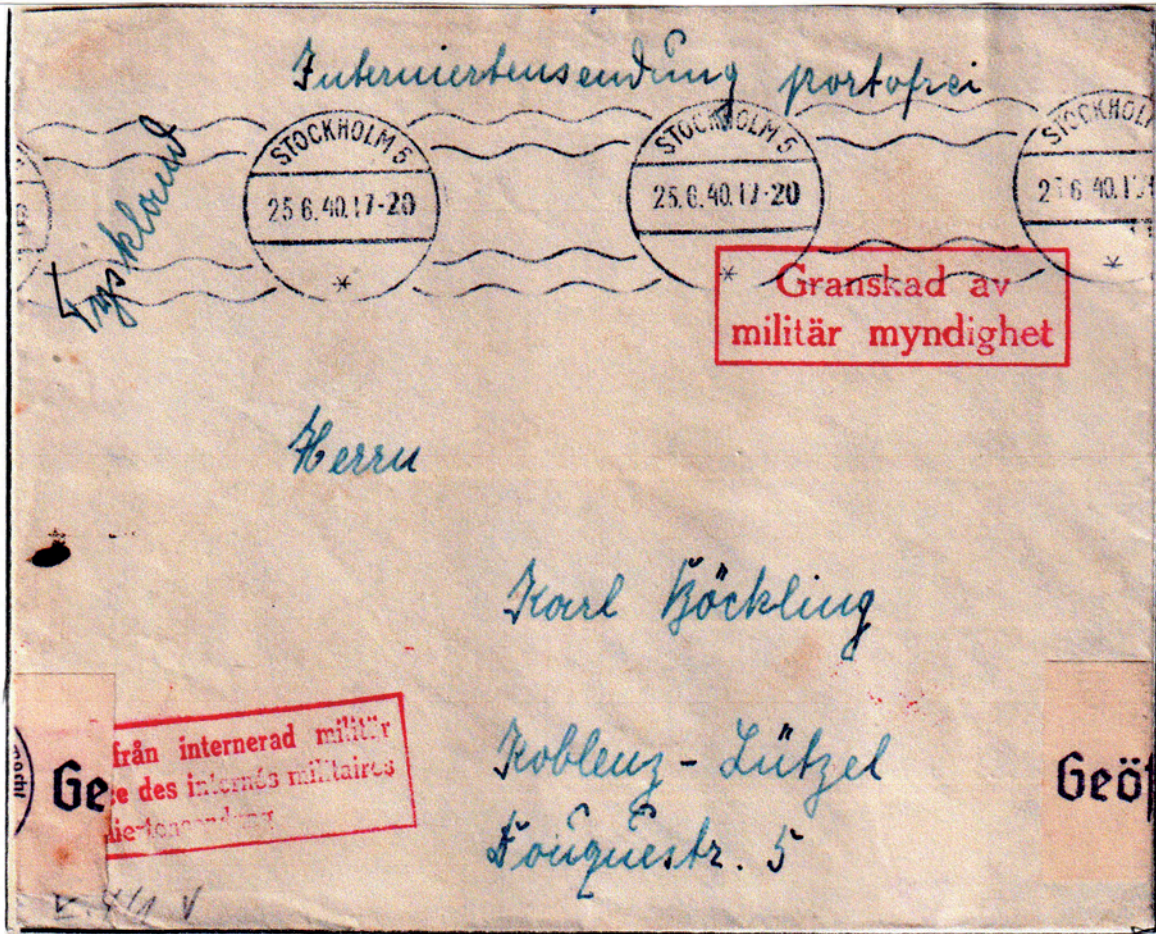 Interniertensendung portofrei
Tyskland
STOCKHOLM 5
25.6.40.17-20
STOCKHOLM 5
25.6.40.17-20
STOCKHOL
6 40.1
Granskad av
militär myndighet
Herrn
Karl Böckling
Koblenz - Lützel
Fouquéstr. 5
från internerad militär
e des internés militaires
iertensendung
Ge
Geöf